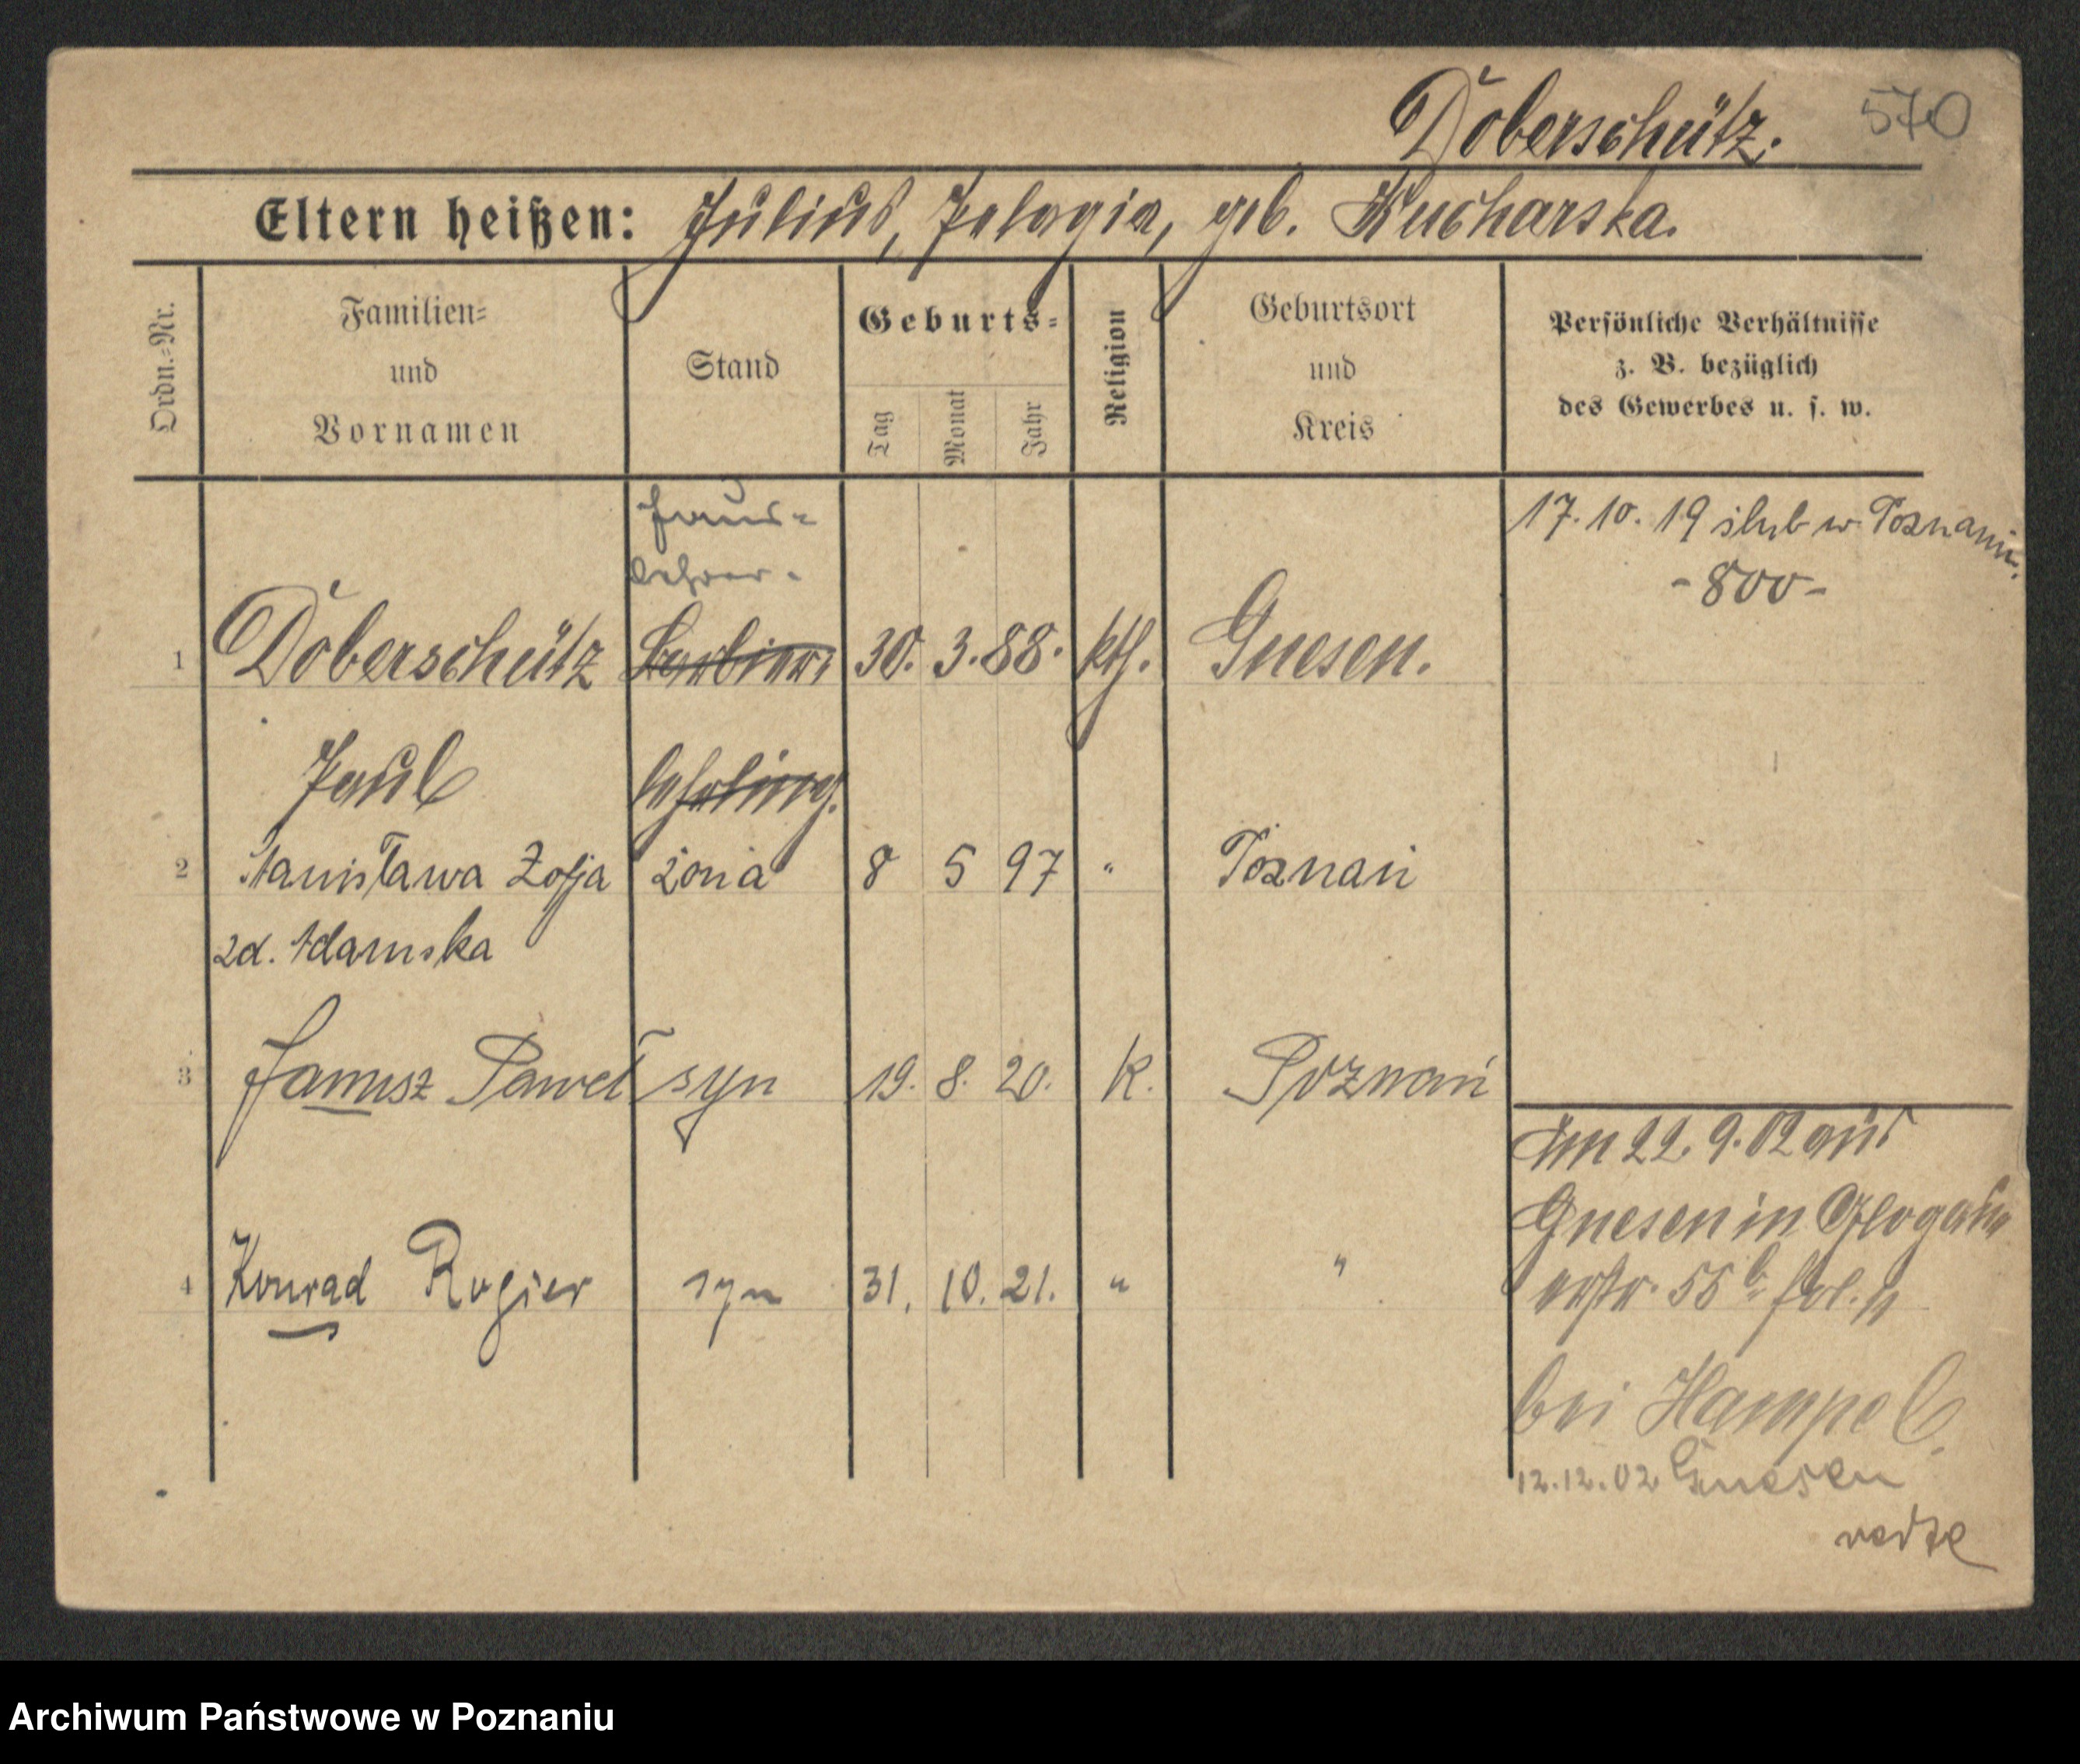 Doberschütz.
570
Eltern heißen: Julius, Pelagia, geb. Kucharska.
Ordn.=Nr.
Familien=
und
Vornamen
Stand
Geburts=
Tag
Monat
Jahr
Religion
Geburtsort
und
Kreis
Persönliche Verhältnisse
z. B. bezüglich
des Gewerbes u. s. w.
17. 10. 19 ślub w Poznaniu.
- 800 -
Haus-
lehrer.
1 Doberschütz Barbier 30. 3. 88. kth. Gnesen.
Paul lehrling.
2 Stanisława Zofja żona 8 5 97 " Poznań
zd. Adamska
3 Janusz Paweł syn 19. 8. 20. k. Poznań
Am 22. 9. 02 aus
Gnesen in Glogau
4 Konrad Rogier syn 31. 10. 21. " "
55 b
bei Hampel.
12.12.02 Gnesen
Archiwum Państwowe w Poznaniu